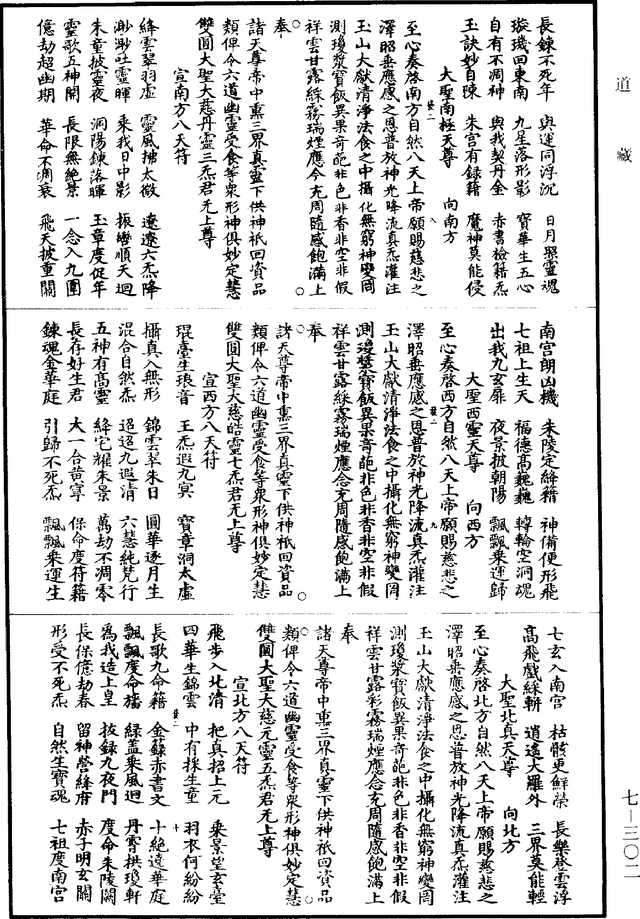 道藏
長鍊不死年　與運同浮沉　日月照靈魂
璇璣回東南　九星落形影　寶華生五心
自有不凋神　與我契丹金　赤書檢籍炁
玉訣妙自陳　朱宮有錄籍　魔神莫能侵
大聖南極天尊　向南方
至心奏啓南方自然八天上帝願賜慈悲之
澤昭垂應感之恩普放神光降流真炁灌注
玉山大獻清淨法食之中攝化無窮神變罔
測瓊漿寶飯異果奇葩非色非香非空非假
祥雲甘露綵霧瑞煙應念充周隨感飽滿上
奉
諸天尊帝中熏三界真靈下供神祇回資品
類俾令六道幽靈受食等衆形神俱妙定慧
雙圓大聖大慈丹靈三炁君无上尊
宣南方八天符
絳雲翠羽虛　靈風拂太微　遼遼六炁降
渺渺吐靈暉　乘我日中影　振轡順天迴
朱童披靈夜　洞陽鍊落暉　玉章度促年
靈歌五神開　長限無絶景　一念入九圍
億劫超幽期　華命不凋衰　飛天披重關
南宮朗幽機　朱陵定絳籍　神備便形飛
七祖上生天　福德高巍巍　轉輪空洞魂
出我九玄扉　夜景披朝陽　飄飄乘運歸
大聖西靈天尊　向西方
至心奏啓西方自然八天上帝願賜慈悲之
澤昭垂應感之恩普放神光降流真炁灌注
玉山大獻清淨法食之中攝化無窮神變罔
測瓊漿寶飯異果奇葩非色非香非空非假
祥雲甘露綵霧瑞煙應念充周隨感飽滿上
奉
諸天尊帝中熏三界真靈下供神祇回資品
類俾令六道幽靈受食等衆形神俱妙定慧
雙圓大聖大慈皓靈七炁君无上尊
宣西方八天符
琨臺生琅音　玉炁遐九冥　寶章洞太虛
攝真入無形　錦雲翠朱日　圓華逐月生
混合自然炁　迢迢九遐清　六慧純梵行
五神有高靈　絳宅耀朱景　萬劫不凋零
長存好生君　太一合黃寧　保命度符籍
鍊魂金華庭　引歸不死炁　飄飄乘運生
七玄入南宮　枯骸更鮮榮　長樂登雲浮
高飛戲綵軿　逍遙大羅外　三界莫能輕
大聖北真天尊　向北方
至心奏啓北方自然八天上帝願賜慈悲之
澤昭垂應感之恩普放神光降流真炁灌注
玉山大獻清淨法食之中攝化無窮神變罔
測瓊漿寶飯異果奇葩非色非香非空非假
祥雲甘露彩霧瑞煙應念充周隨感飽滿上
奉
諸天尊帝中熏三界真靈下供神祇回資品
類俾令六道幽靈受食等衆形神俱妙定慧
雙圓大聖大慈元靈五炁君无上尊
宣北方八天符
飛步入北清　把真招上元　乘景望玄臺
四華生錦雲　中有採生童　羽衣何紛紛
長歌九命籍　金蘇赤書文　十絶遶華庭
飄飄度命旛　緑蓋乘風迴　丹霄拱瓊軒
爲我造上皇　拔録九夜門　度命朱陵闕
長保億劫春　留神營絳府　赤子明玄關
形受不死炁　自然生寶魂　七祖度南宮
七—三〇二